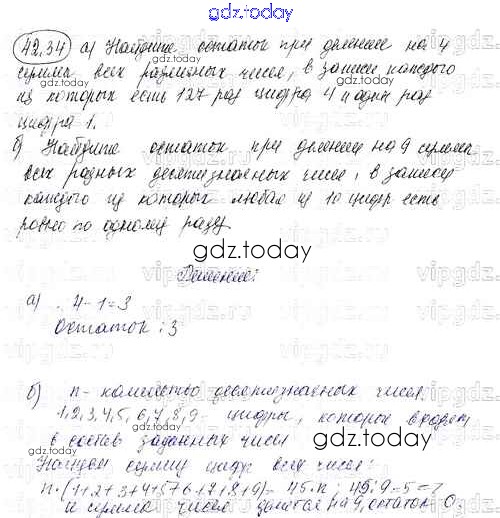 gdz.today
42.34 а) Найдите остаток при делении на 4
суммы всех различных чисел, в записи каждого
из которых есть 127 раз цифра 4 и один раз
цифра 1.
б) Найдите остаток при делении на 9 суммы
всех разных десятизначных чисел, в записи
каждого из которых любая из 10 цифр есть
ровно по одному разу.
gdz.today
Решение:
а) 4-1=3
Остаток: 3
gdz.today
б) n - количество десятизначных чисел,
1,2,3,4,5,6,7,8,9 - цифры, которые входят
в состав заданных чисел
Найдем сумму цифр всех чисел:
n·(1+2+3+4+5+6+7+8+9)= 45·n; 45:9=5 =>
и сумма чисел делится на 9, остаток 0.
gdz.today